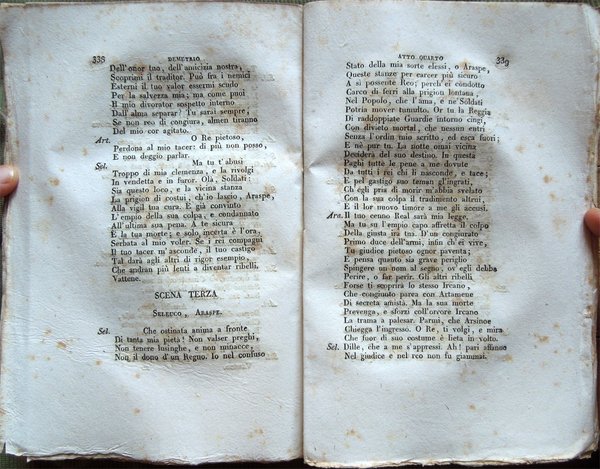 338
DEMETRIO
Dell'onor tuo, dell'amicizia nostra,
Scoprimi il traditor. Può fra i nemici
Esterni il tuo valor essermi scudo
Per la salvezza mia; ma come puoi
Il mio divorator sospetto interno
Dall'alma separar? Tu sarai sempre,
Se non reo di congiura, almen tiranno
Del mio cor agitato.
Art. O Re pietoso,
Perdona al mio tacer: di più non posso,
E non deggio parlar.
Sel. Ma tu t'abusi
Troppo di mia clemenza, e la rivolgi
In vendetta e in furor. Olà, Soldati:
Sia questo loco, e la vicina stanza
La prigion di costui, ch'io lascio, Araspe,
Alla vigil tua cura. E già convinto
L'empio della sua colpa, e condannato
All'ultima sua pena. A te sicura
E la tua morte; e solo incerta è l'ora,
Serbata al mio voler. Se i rei compagni
Il tuo tacer m'asconde, il tuo castigo
Tal darà agli altri di rigor esempio,
Che andran più lenti a diventar ribelli.
Vattene.
SCENA TERZA
SELEUCO, ARASPE.
Sel. Che ostinata anima a fronte
Di tanta mia pietà! Non valser preghi,
Non tenere lusinghe, e non minacce,
Non il dono d'un Regno. Io nel confuso
ATTO QUARTO
339
Stato della mia sorte elessi, o Araspe,
Queste stanze per carcer più sicuro
A sì possente Reo; perch'ei condotto
Carco di ferri alla prigion lontana,
Nel Popolo, che l'ama, e ne' Soldati
Potria mover tumulto. Or tu la Reggia
Di raddoppiate Guardie intorno cingi,
Con divieto mortal, che nessun entri
Senza l'ordin mio scritto, ed esca fuori;
E nè pur tu. La notte omai vicina
Deciderà del suo destino. In questa
Paghi tutte le pene a me dovute
Da tutti i rei chi li nasconde, e tace;
E pel gastigo suo teman gl'ingrati,
Ch'egli pria di morir m'abbia svelato
Con la sua colpa il tradimento altrui,
E il lor nuovo timore a me gli accusi.
Ara. Il tuo cenno Real sarà mia legge.
Ma tu su l'empio capo affretta il colpo
Della giusta ira tua. D'un congiurato
Primo duce dell'armi, infin ch'ei vive,
Tu giudice pietoso ognor paventa;
E pensa quanto sia grave periglio
Spingere un nom al segno, ov'egli debba
Perire, o far perir. Gli altri ribelli
Forse ti scoprirà lo stesso Ircano,
Che congiunto parea con Artamene
Di secreta amistà. Ma la sua morte
Prevenga, e sforzi coll'orrore Ircano
La trama a palesar. Parmi, che Arsinoe
Chiegga l'ingresso. O Re, ti volgi, e mira
Che fuor di suo costume è lieta in volto.
Sel. Dille, che a me s'appressi. Ah! pari affanno
Nel giudice e nel reo non fu giammai.